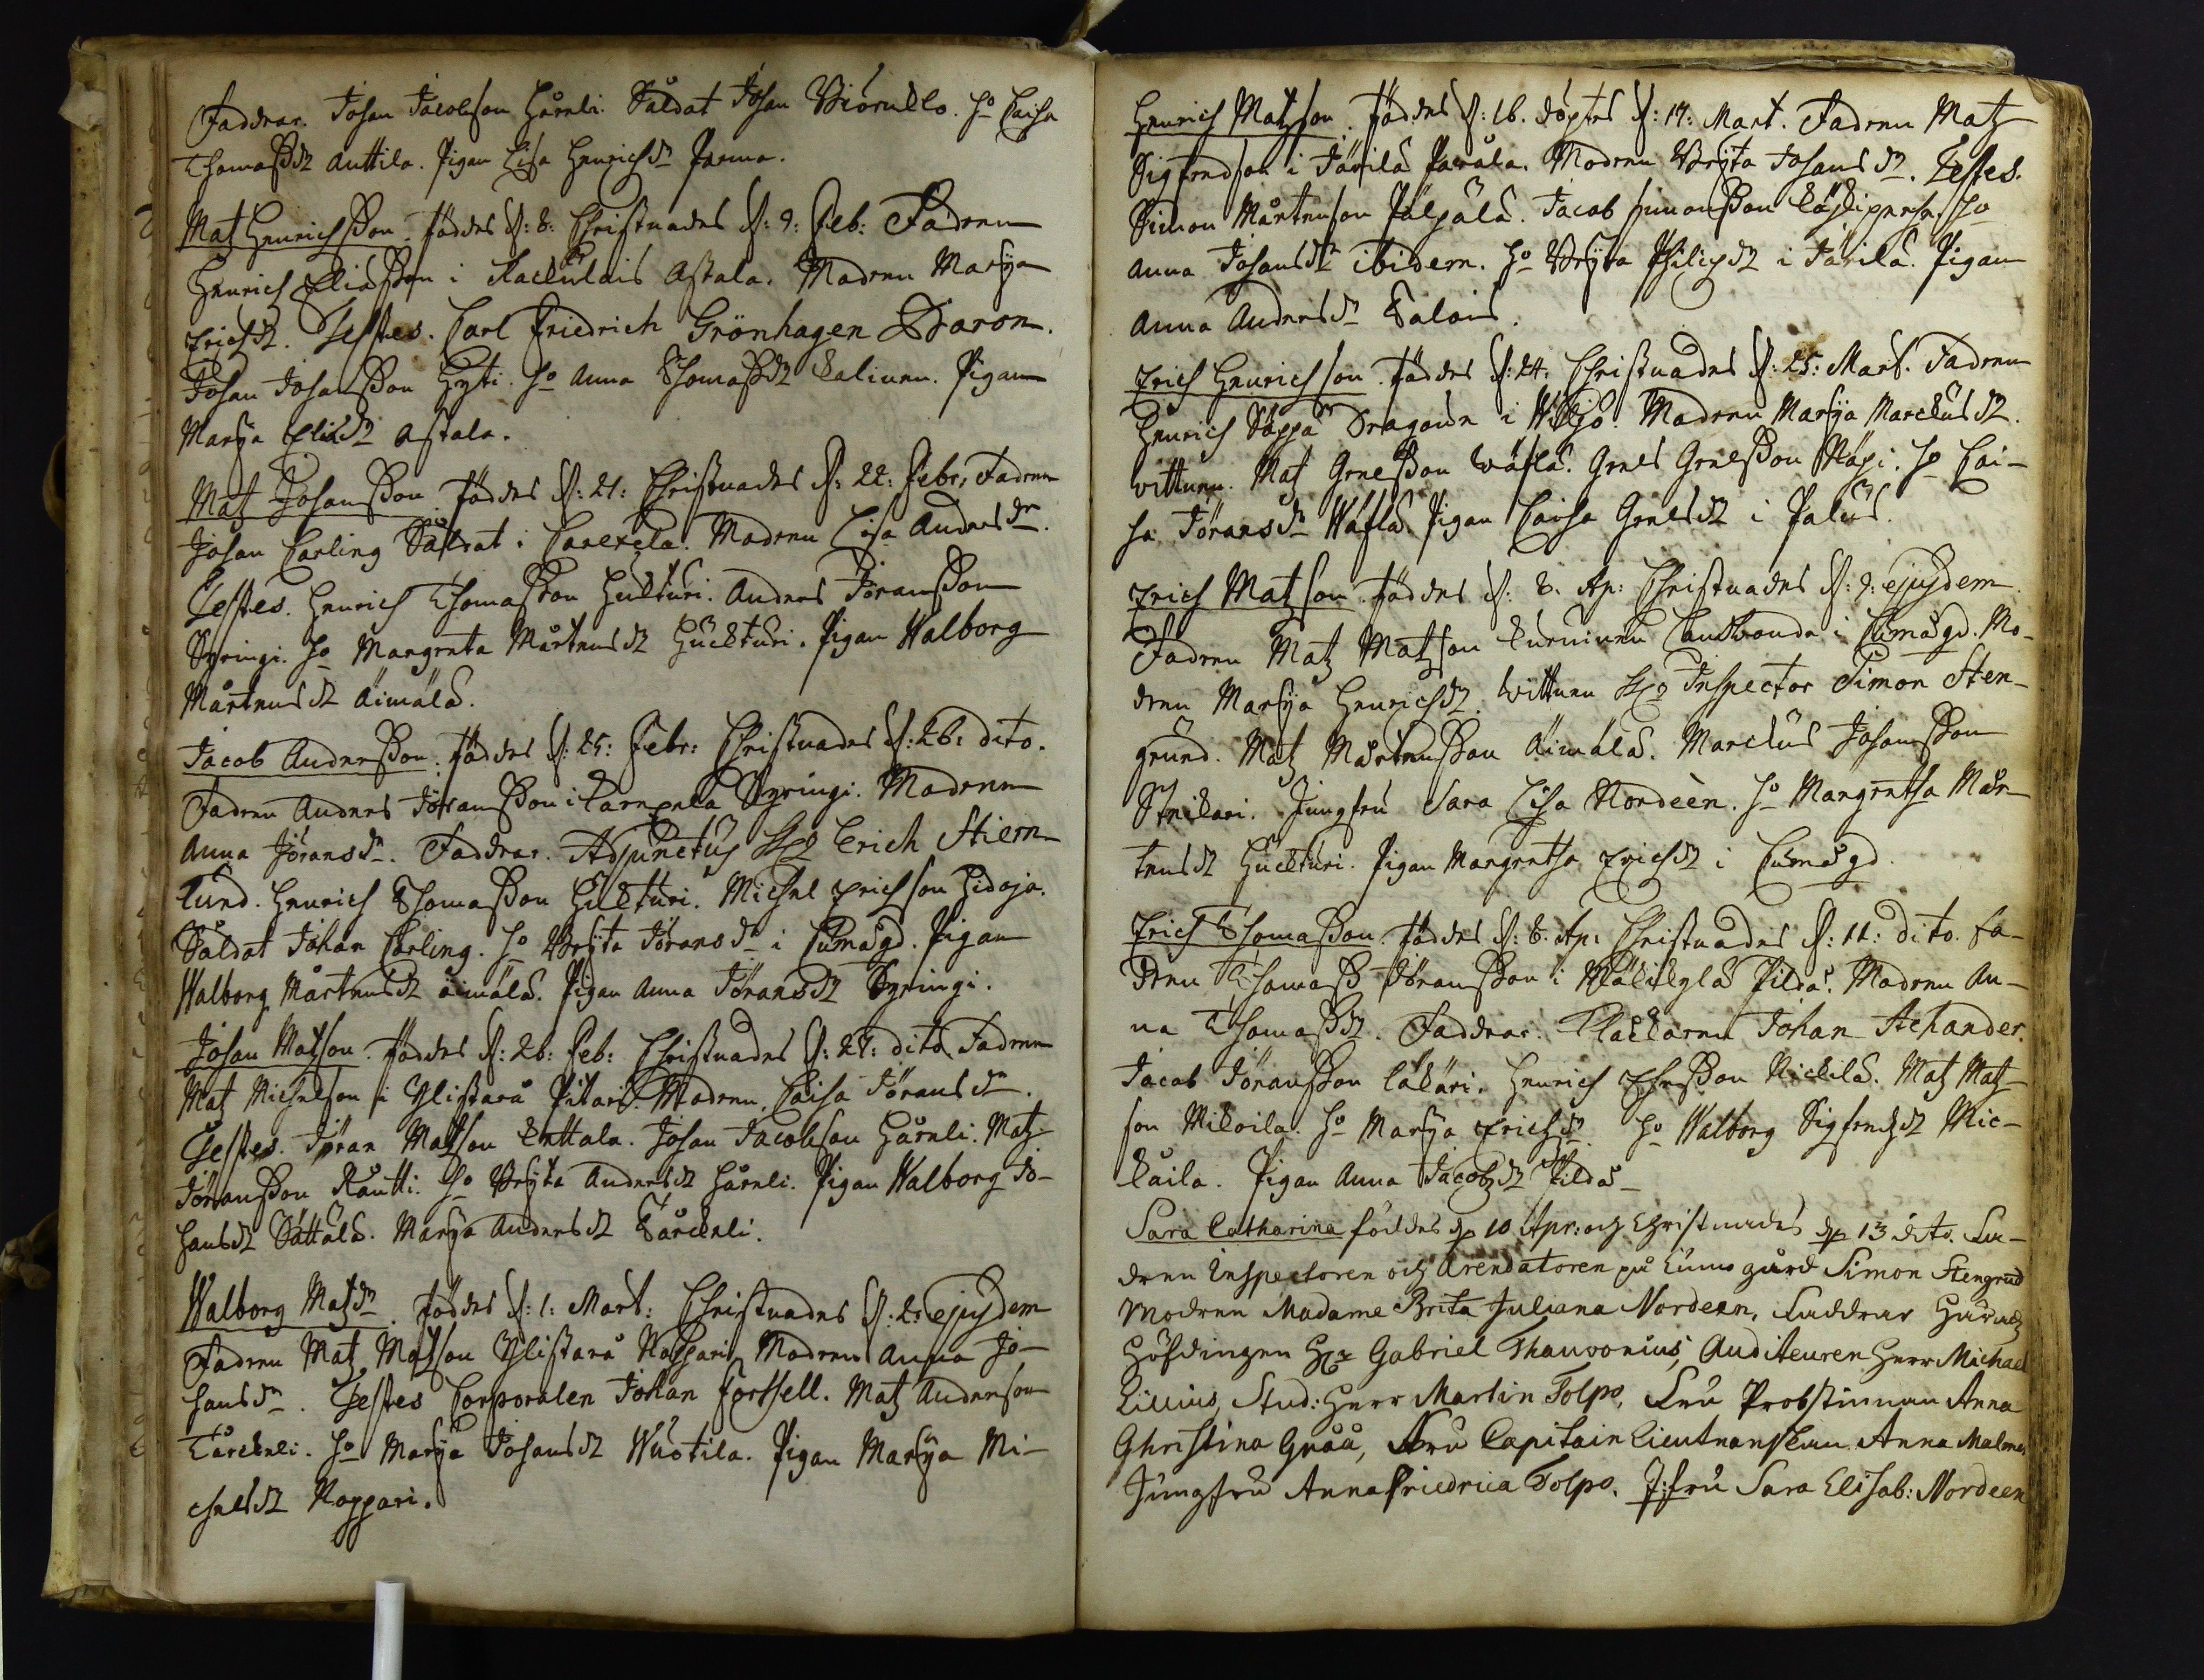 Faddrar. Johan Jacobson Hårnli. Såldat Johan Biörn. H:o Caisa
Thomasdr Anttila. Pigan Lisa Henrichdr
Matz Henrichsson. föddes d: 8: Christnades d: 9: Feb: Fadren
Henrich Eliasson i Astala. Modren Marja
Erichdr. Testes. Carl Friedrich Grönhagen Baron.
Johan Johansson Hyti. H:o Anna Thomasdr Pigan
Marja Eliadr Astala.
Matz Johansson. föddes d: 21: Christnades d: 22: Febr: Fadren
Johan Carling Såldat i Modren Lisa Andersdr.
Testes. Henrich Thomasson Hulkturi. Anders Jöransson
Syringi. H:o Margreta Mårtensdr Huckturi. Pigan Walborg
Mårtensdr Äimälä.
Jacob Andersson. föddes d: 25: Febr: Christnades d: 26: dito.
Fadren Anders Jöransson i Syringi. Modren
Anna Jöransdr. Faddrar. Adjunctus H:r Erich Stiern-
lund. Henrich Thomasson Hulkturi. Michel Erichson Hidoja.
Såldat Johan Carling. H:o Brijta Jöransdr i Cumogd. Pigan
Walborg Mårtensdr Äimälä. Pigan Anna Jöransdr Syringi.
Johan Matzson. föddes d: 26: Feb: Christnades d: 27: dito. Fadren
Matz Michelson i Ylistarå Pikari. Modren Caisa Jöransdr.
Testes. Jöran Matzson Anttala. Johan Jacobson Hårnli. Matz
Jöransson Rautti. H:o Brijta Andersdr Hårnli. Pigan Walborg Jo-
hansdr Sättälä. Marja Andersdr Tårckeli.
Walborg Matzdr. föddes d: 1: Mart: Christnades d: 2: ejusdem
Fadren Matz Matzson Ylistarå Nappari, Modren Anna Jo-
hansdr. Testes Corporalen Johan Forssell. Matz Anderson
Tårckeli. H:o Marja Johansdr Wuotila. Pigan Marja Mi-
chelsdr Nappari.
Henrich Matzson. föddes d: 16. döptes d: 17: Mart. Fadren Matz
Sigfredson i Järilä Pavola. Modren Brijta Johansdr. Testes.
Simon Mårtenson Pälpälä. Jacob Simonsson H:o
Anna Johansdr ibidem. H:o Brijta Philipdr i Järilä. Pigan
Anna Andersdr Talois.
Erich Henrichson. föddes d: 24: Christnades d: 25: Mart. Fadren
Henrich Säppä Dragoun i Wiljo. Modren Marja Marckusdr.
Wittnen. Matz Grelsson Wäflä. Grels Grelsson Näpi. H:o Cai-
sa Jöransdr Wäflä. Pigan Caisa Grelsdr i Palus.
Erich Matzson. föddes d: 8. Ap: Christnades d: 9: ejusdem.
Fadren Matz Matzson Landbonde i Cumogd. Mo-
dren Marja Henrichdr. Wittnen H:r Inspector Simon Sten-
grund. Matz Mårtensson Äimälä. Marckus Johansson
Jungfru Sara Lisa Nordeèn. H:o Margretha Mår-
tensdr Huckturi. Pigan Margretha Erichdr i Cumogd.
Erich Thomasson. föddes d: 8. Ap: Christnades d: 11: dito. Fa-
dren Thomas Jöransson i Pilda. Modren An-
na Thomasdr. Faddrar. Klockaren Johan Achander.
Jacob Jöransson Läkäri. Henrich Nickilä. Matz Matz-
son Mikoila. H:o Marja Erichdr. H:o Walborg Sigfredzdr Mic-
kaila. Pigan Anna Jacobdr Pilda
Sara Catharina föddes d: 10 Apr: och Christnades d: 13 dito. Fa-
dren Inspectoren och Arendatoren på Cumo gård Simon Stengrud
Modren Madame Brita Juliana Nordeen, Faddrar Härads
Höfdingen H:r Gabriel Thauvonius, Auditeuren Herr Michael
Livius, Stud: Herr Martin Tolpo, Fru Probstinnan Anna
Christina Gråå, Fru Capitain Lieutnanskan Anna Malm
Jungfru Anna Friedrica Tolpo, J:fru Sara Elisab: Nordeen